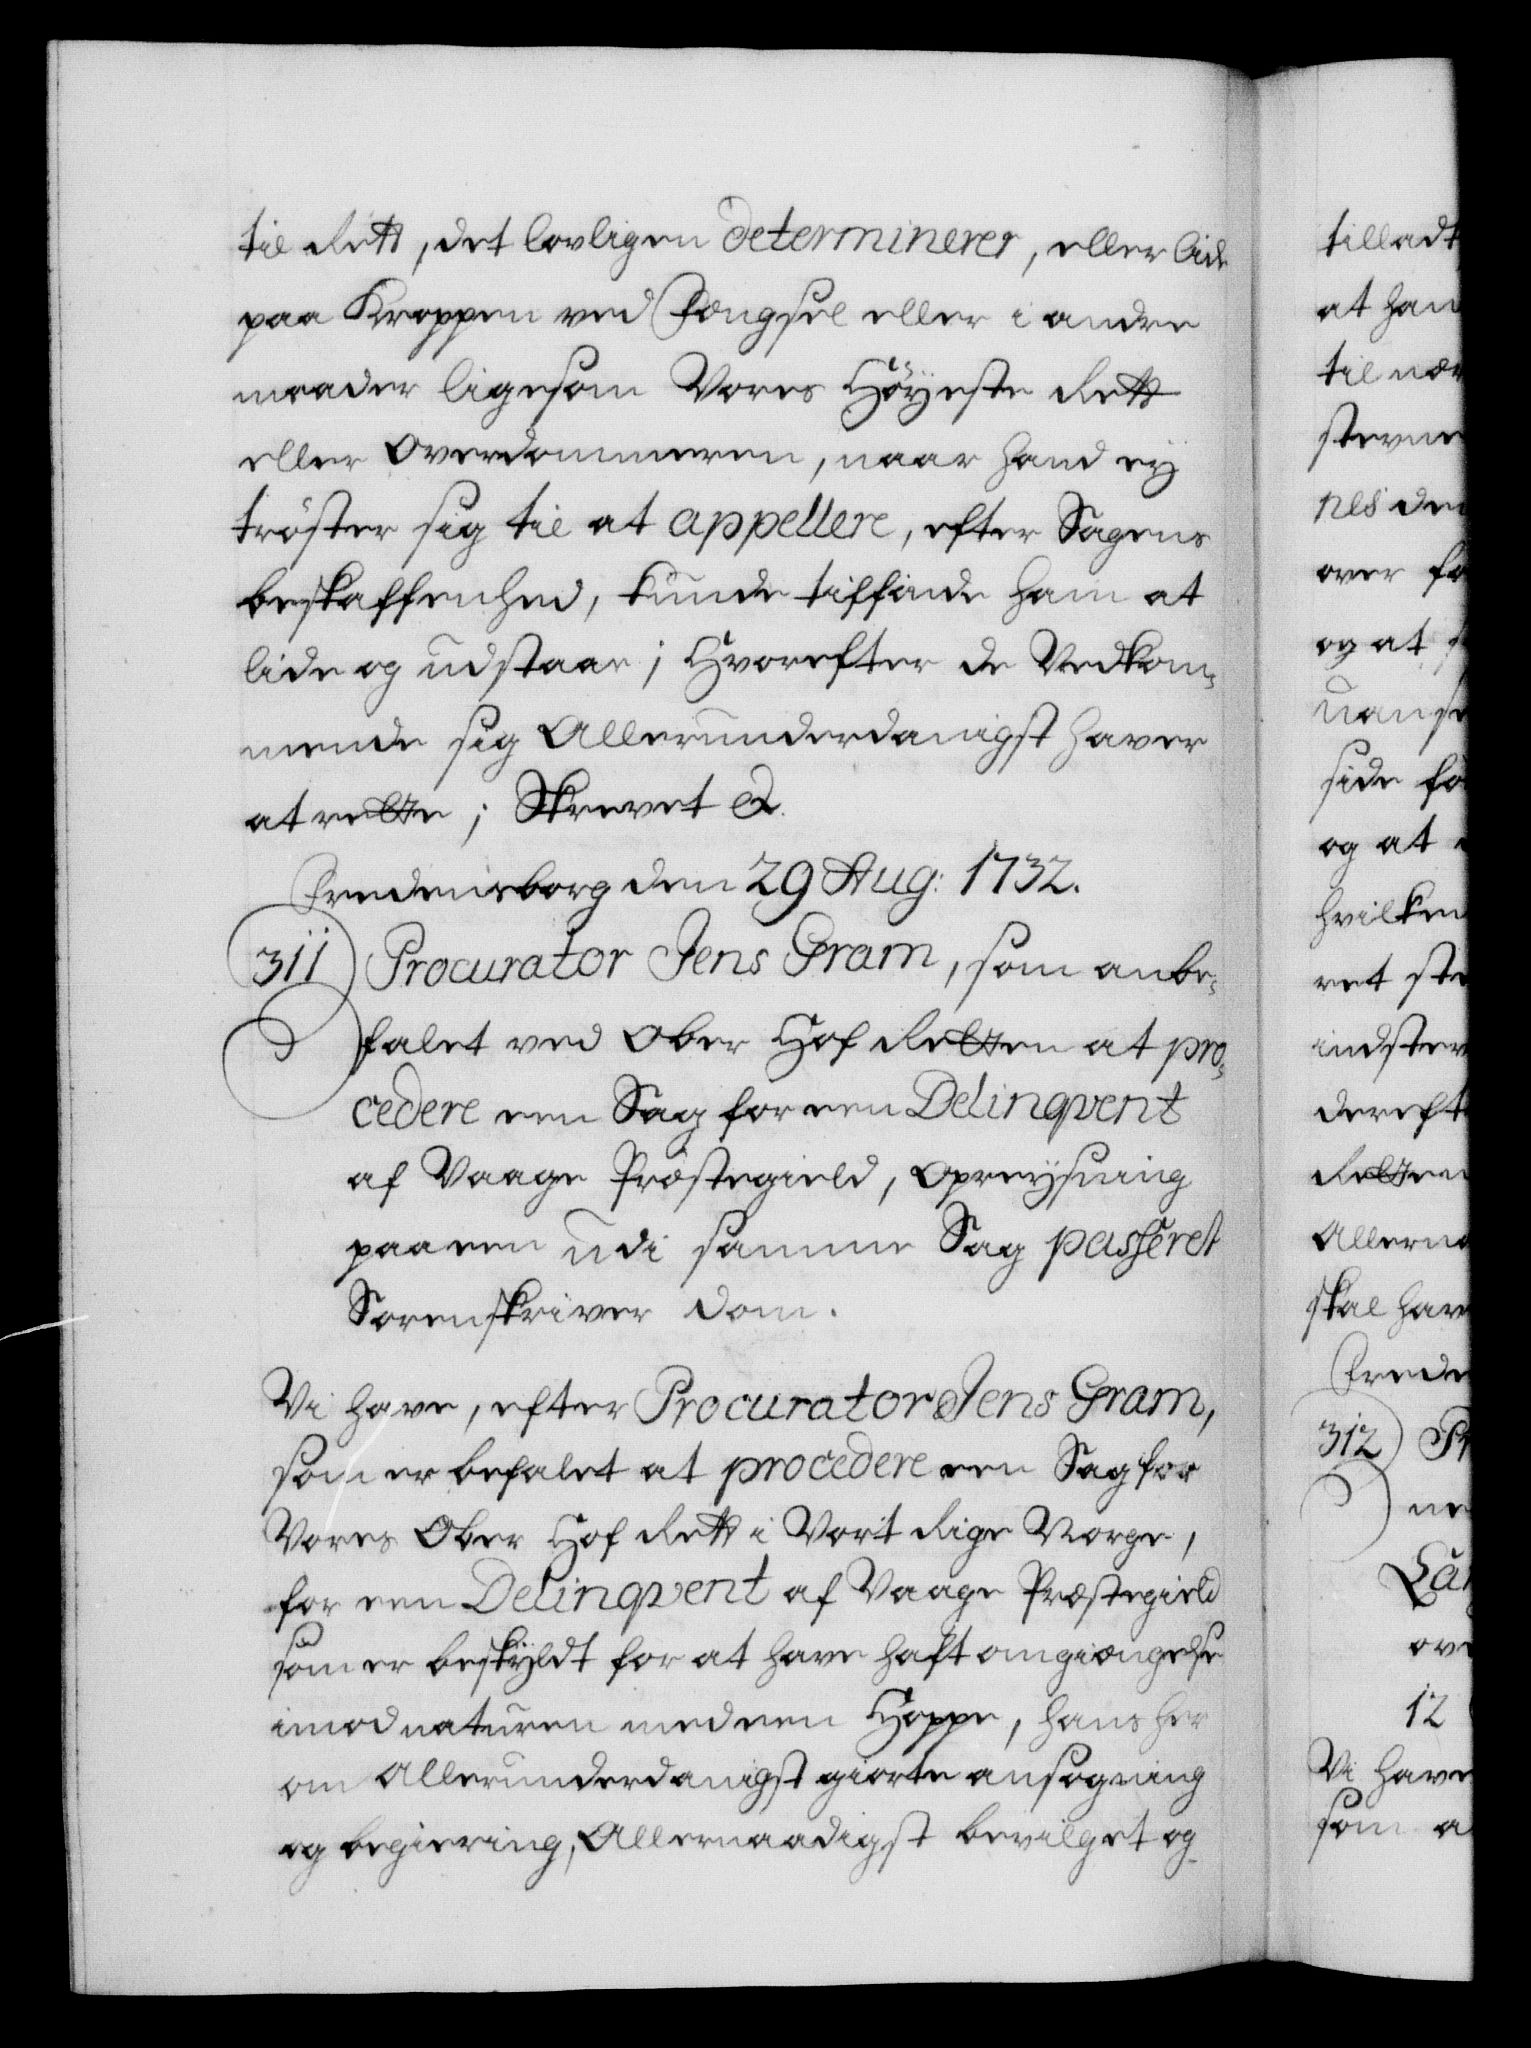 til Rett, det lovligen determinerer, eller lide
paa Kroppen ved Fængsel eller i andre
maader ligesom Vores Höyeste Rett
eller Overdommeren, naar hand ey
tröster sig til at appellere, efter Sagens
beskaffenhed, kunde tilfinde ham at
lide og udstaae; Hvorefter de Vedkom-
mende sig Allerunderdanigst haver
at rette; Skrevet &.
Fredensborg den 29 Aug: 1732.
311 Procurator Jens Gram, som anbe-
falet ved Ober Hof Retten at pro-
cedere een Sag for een Delinqvent
af Vaage Præstegield, Opreysning
paa een udi samme Sag passeret
Sorenskriver dom.
Vi have, efter Procurator Jens Gram,
som er befalet at procedere een Sag for
Vores Ober Hof Rett i Vort Rige Norge,
for een Delinqvent af Vaage Præstegield
som er beskyldt for at have haft omgiængelse
imod naturen med een Hoppe, hans her
om Allerunderdanigst giorte ansøgning
og begiering, Allernaadigst bevilget og
tilladt
at han
til nær
stevne
nes den
over fo
og at
uanse
side fo
og at
hvilken
ret ste
indstev
dereft
Retten
Allerna
skal have
Frede
312 Pr
ne
Lau
ove
12
Vi have
som a